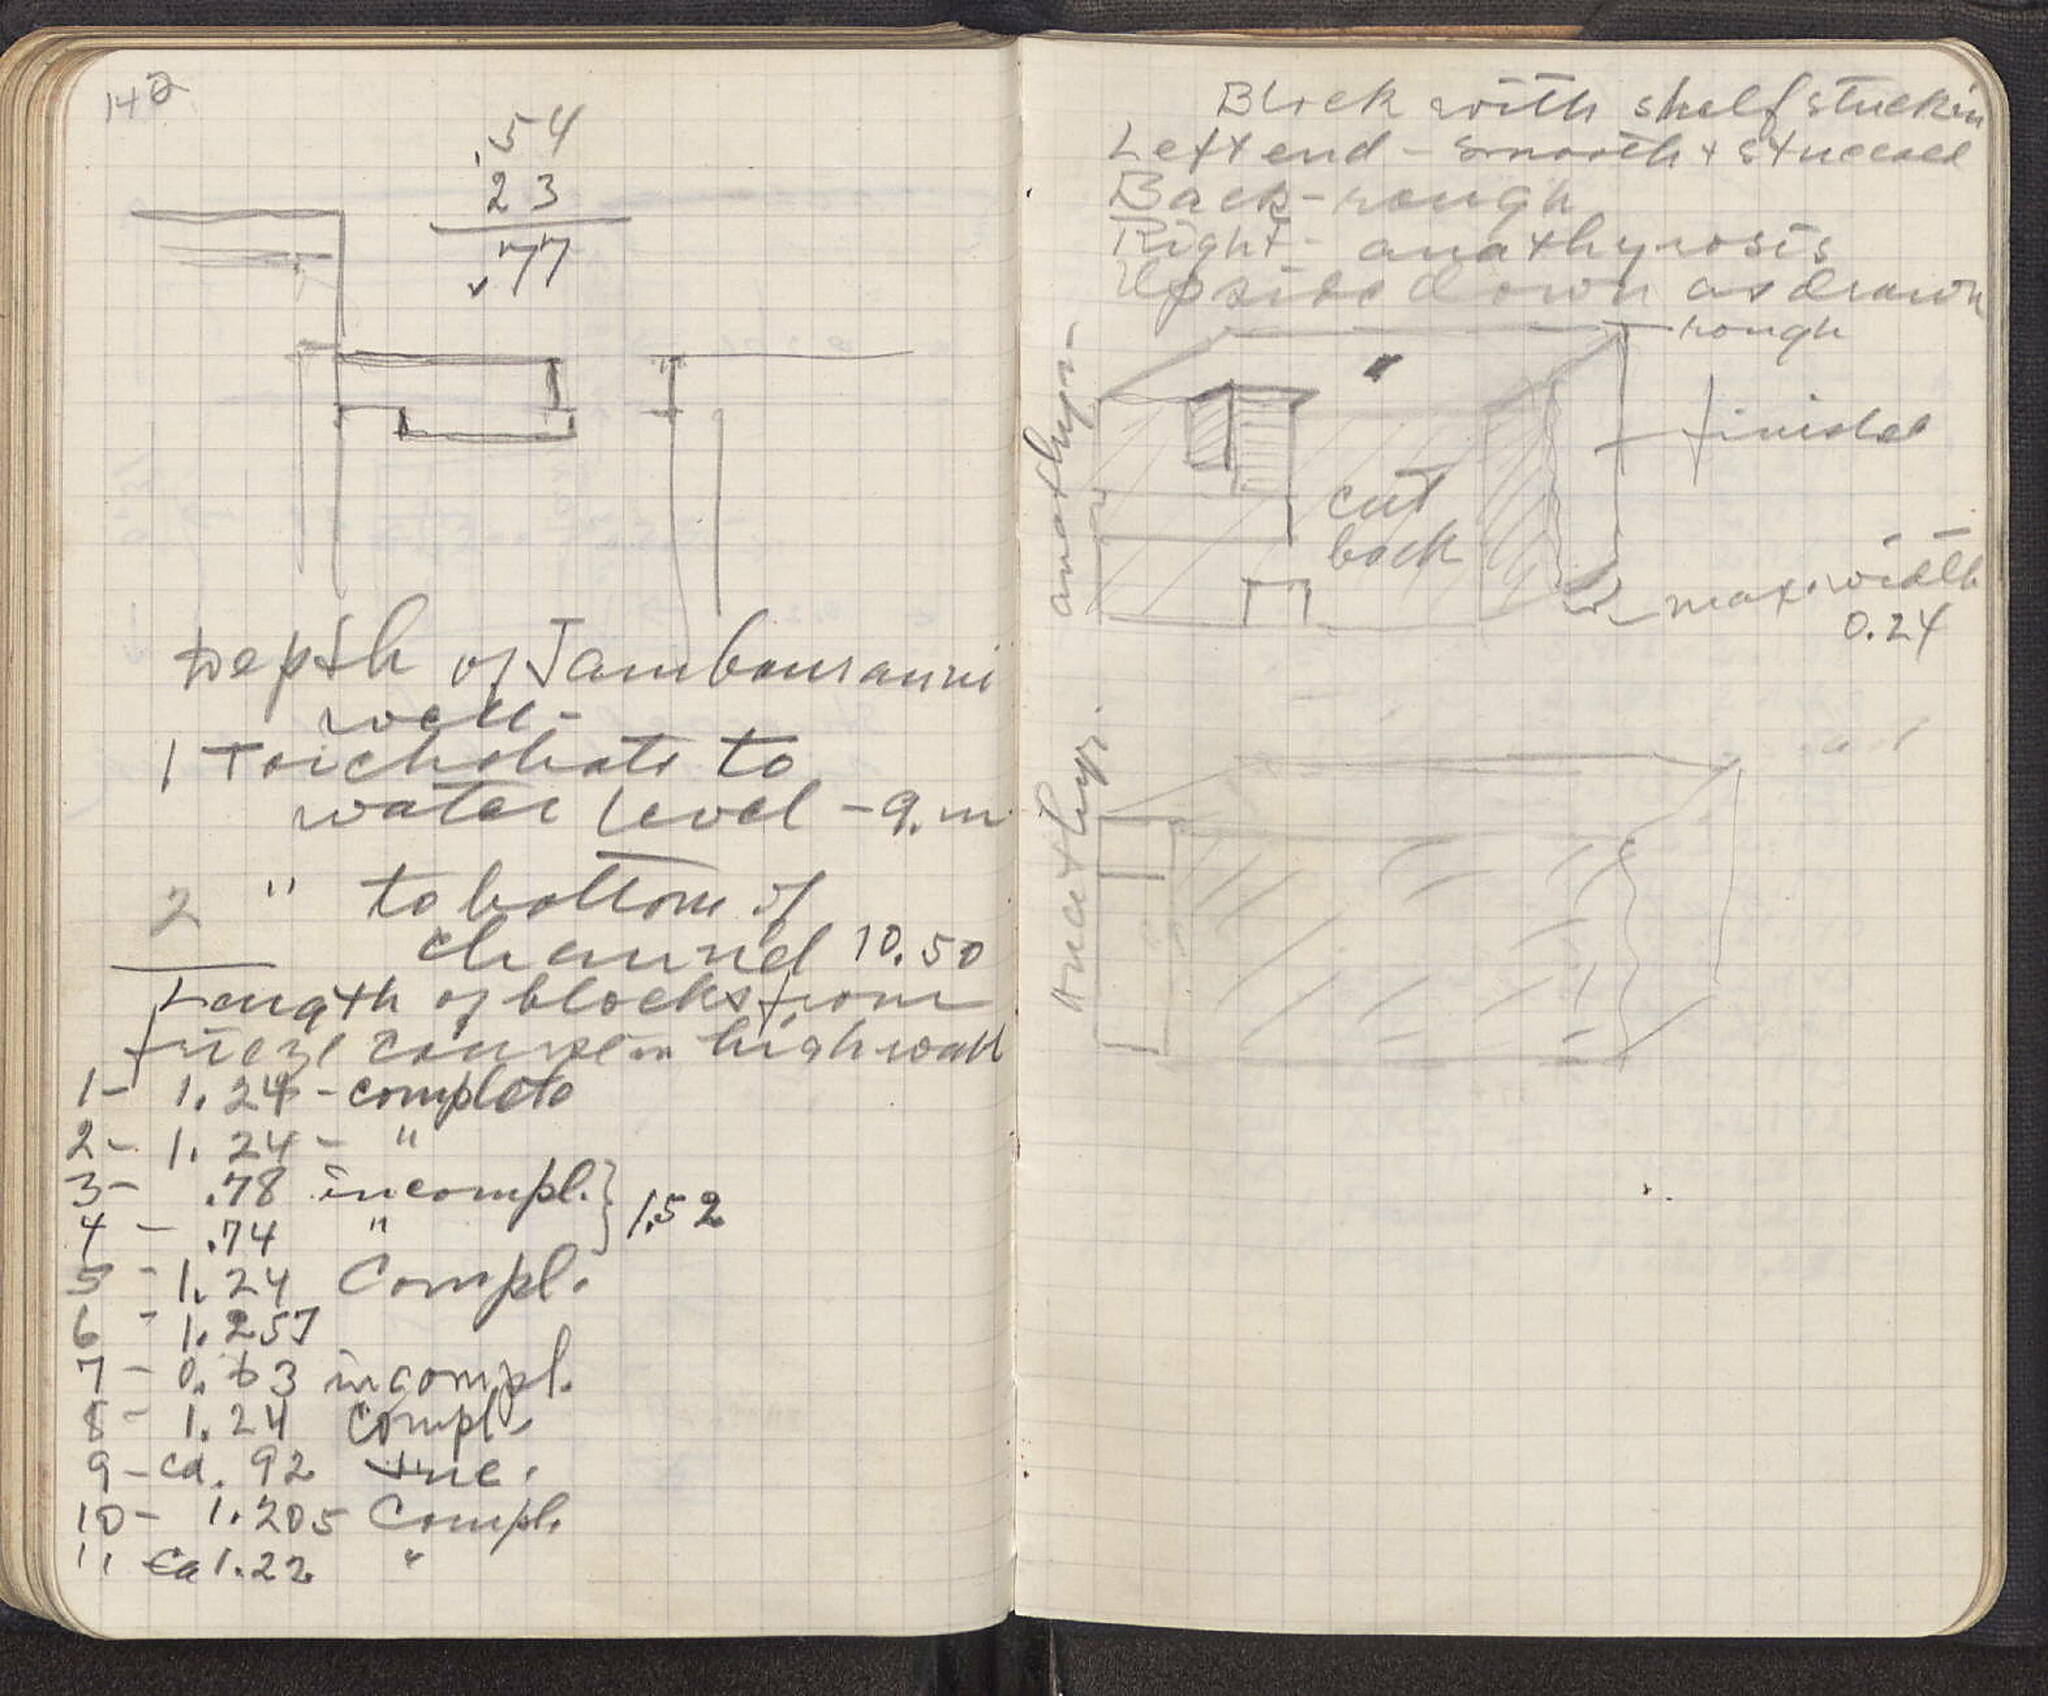 142
.54
23
.77
Depth of Tambouranni
well-
1 Toichobate to
water level - 9. m
2 " to bottom of
channel 10.50
Length of blocks from
frieze course in high wall
1- 1.24 - complete
2- 1.24 - "
3- .78 incompl.
4 - .74 " } 1.52
5 - 1.24 Compl.
6 - 1.257
7 - 0.63 incompl.
8 - 1.24 Compl.
9 - ca. 92 inc.
10 - 1.205 Compl.
11 ca 1.22 "
Block with shelf stuck in
Left end - smooth + stuccoed
Back - rough
Right - anathyrosis
Upside down as drawn
rough
anathyr-
finished
cut
back
max. width
0.24
anathyr.